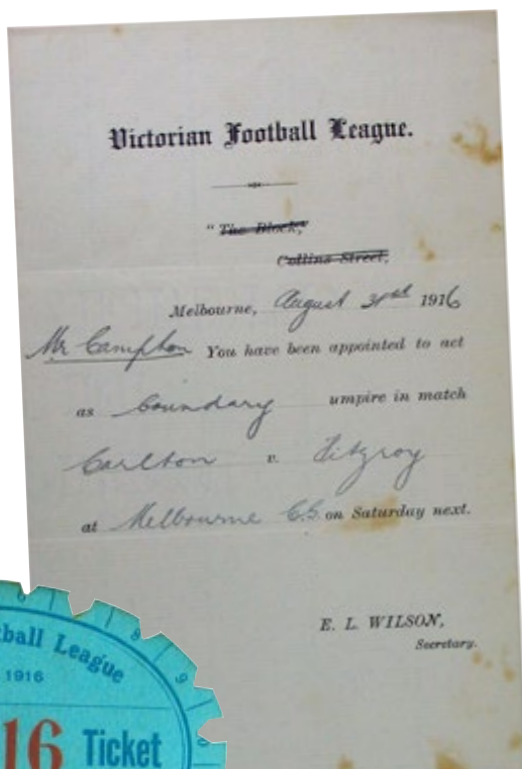 Victorian Football League.
"The Block,"
Collins Street,
Melbourne, August 31st 1916
Mr Campton You have been appointed to act
as boundary umpire in match
Carlton v. Fitzroy
at Melbourne C.G. on Saturday next.
E. L. WILSON,
Secretary.
ball League
1916
16 Ticket
6
8
9